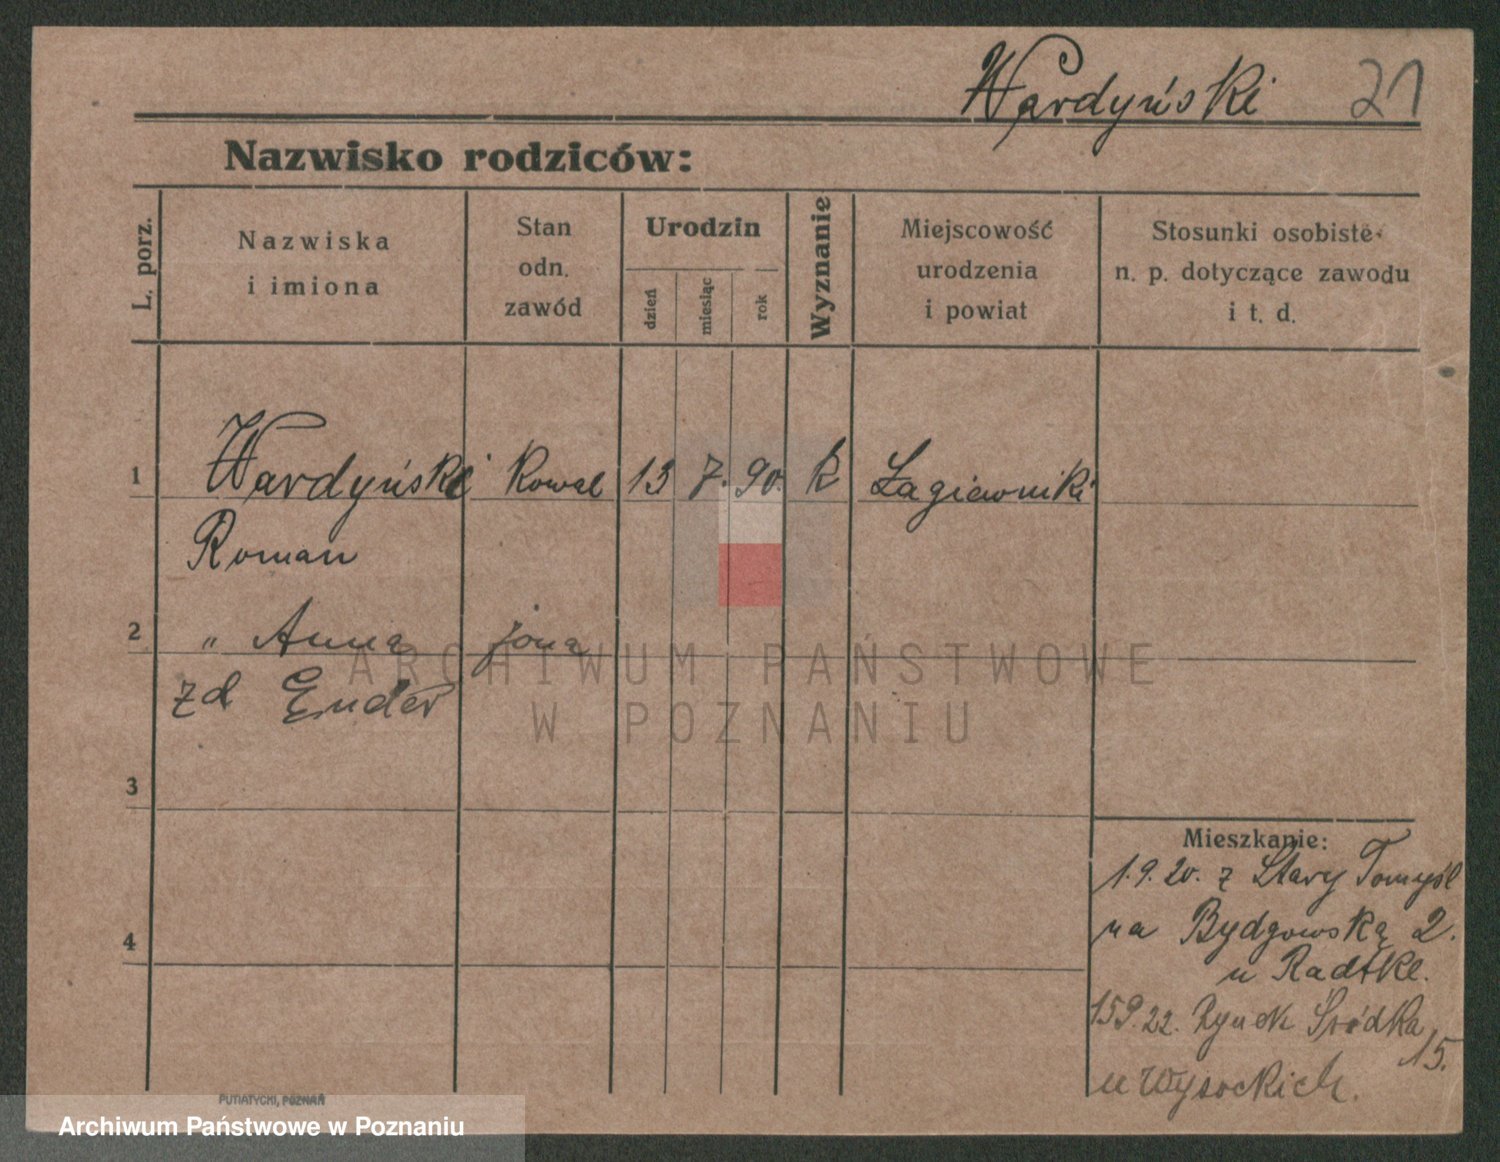 Wardyński 21
Nazwisko rodziców:
L. porz.
Nazwiska
i imiona
Stan
odn.
zawód
Urodzin
dzień
miesiąc
rok
Wyznanie
Miejscowość
urodzenia
i powiat
Stosunki osobiste
n. p. dotyczące zawodu
i t. d.
1 Wardyński Kowal 13 7. 90. k Łagiewniki
Roman
2 " Anna żona
zd Ender
3
4
Mieszkanie:
1.9.20. z Stary Tomyśl
na Bydgowską 2.
u Radtke.
159.22. Rynek Śródka
15.
u Wysockich.
PUTIATYCKI, POZNAŃ
ARCHIWUM PAŃSTWOWE
W POZNANIU
Archiwum Państwowe w Poznaniu